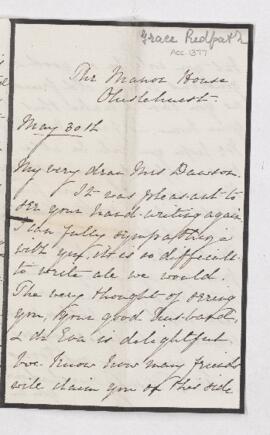 Grace Redpath
ACC. 1377
The Manor House
Chislehurst.
May 30th
My very dear Mrs Dawson.
It was pleasant to
see your hand-writing again
I can fully sympathize
with you, it is so difficult
to write all we would.
The very thought of seeing
you, your good husband,
& dr Eva is delightful
We know how many friends
will claim you on this side